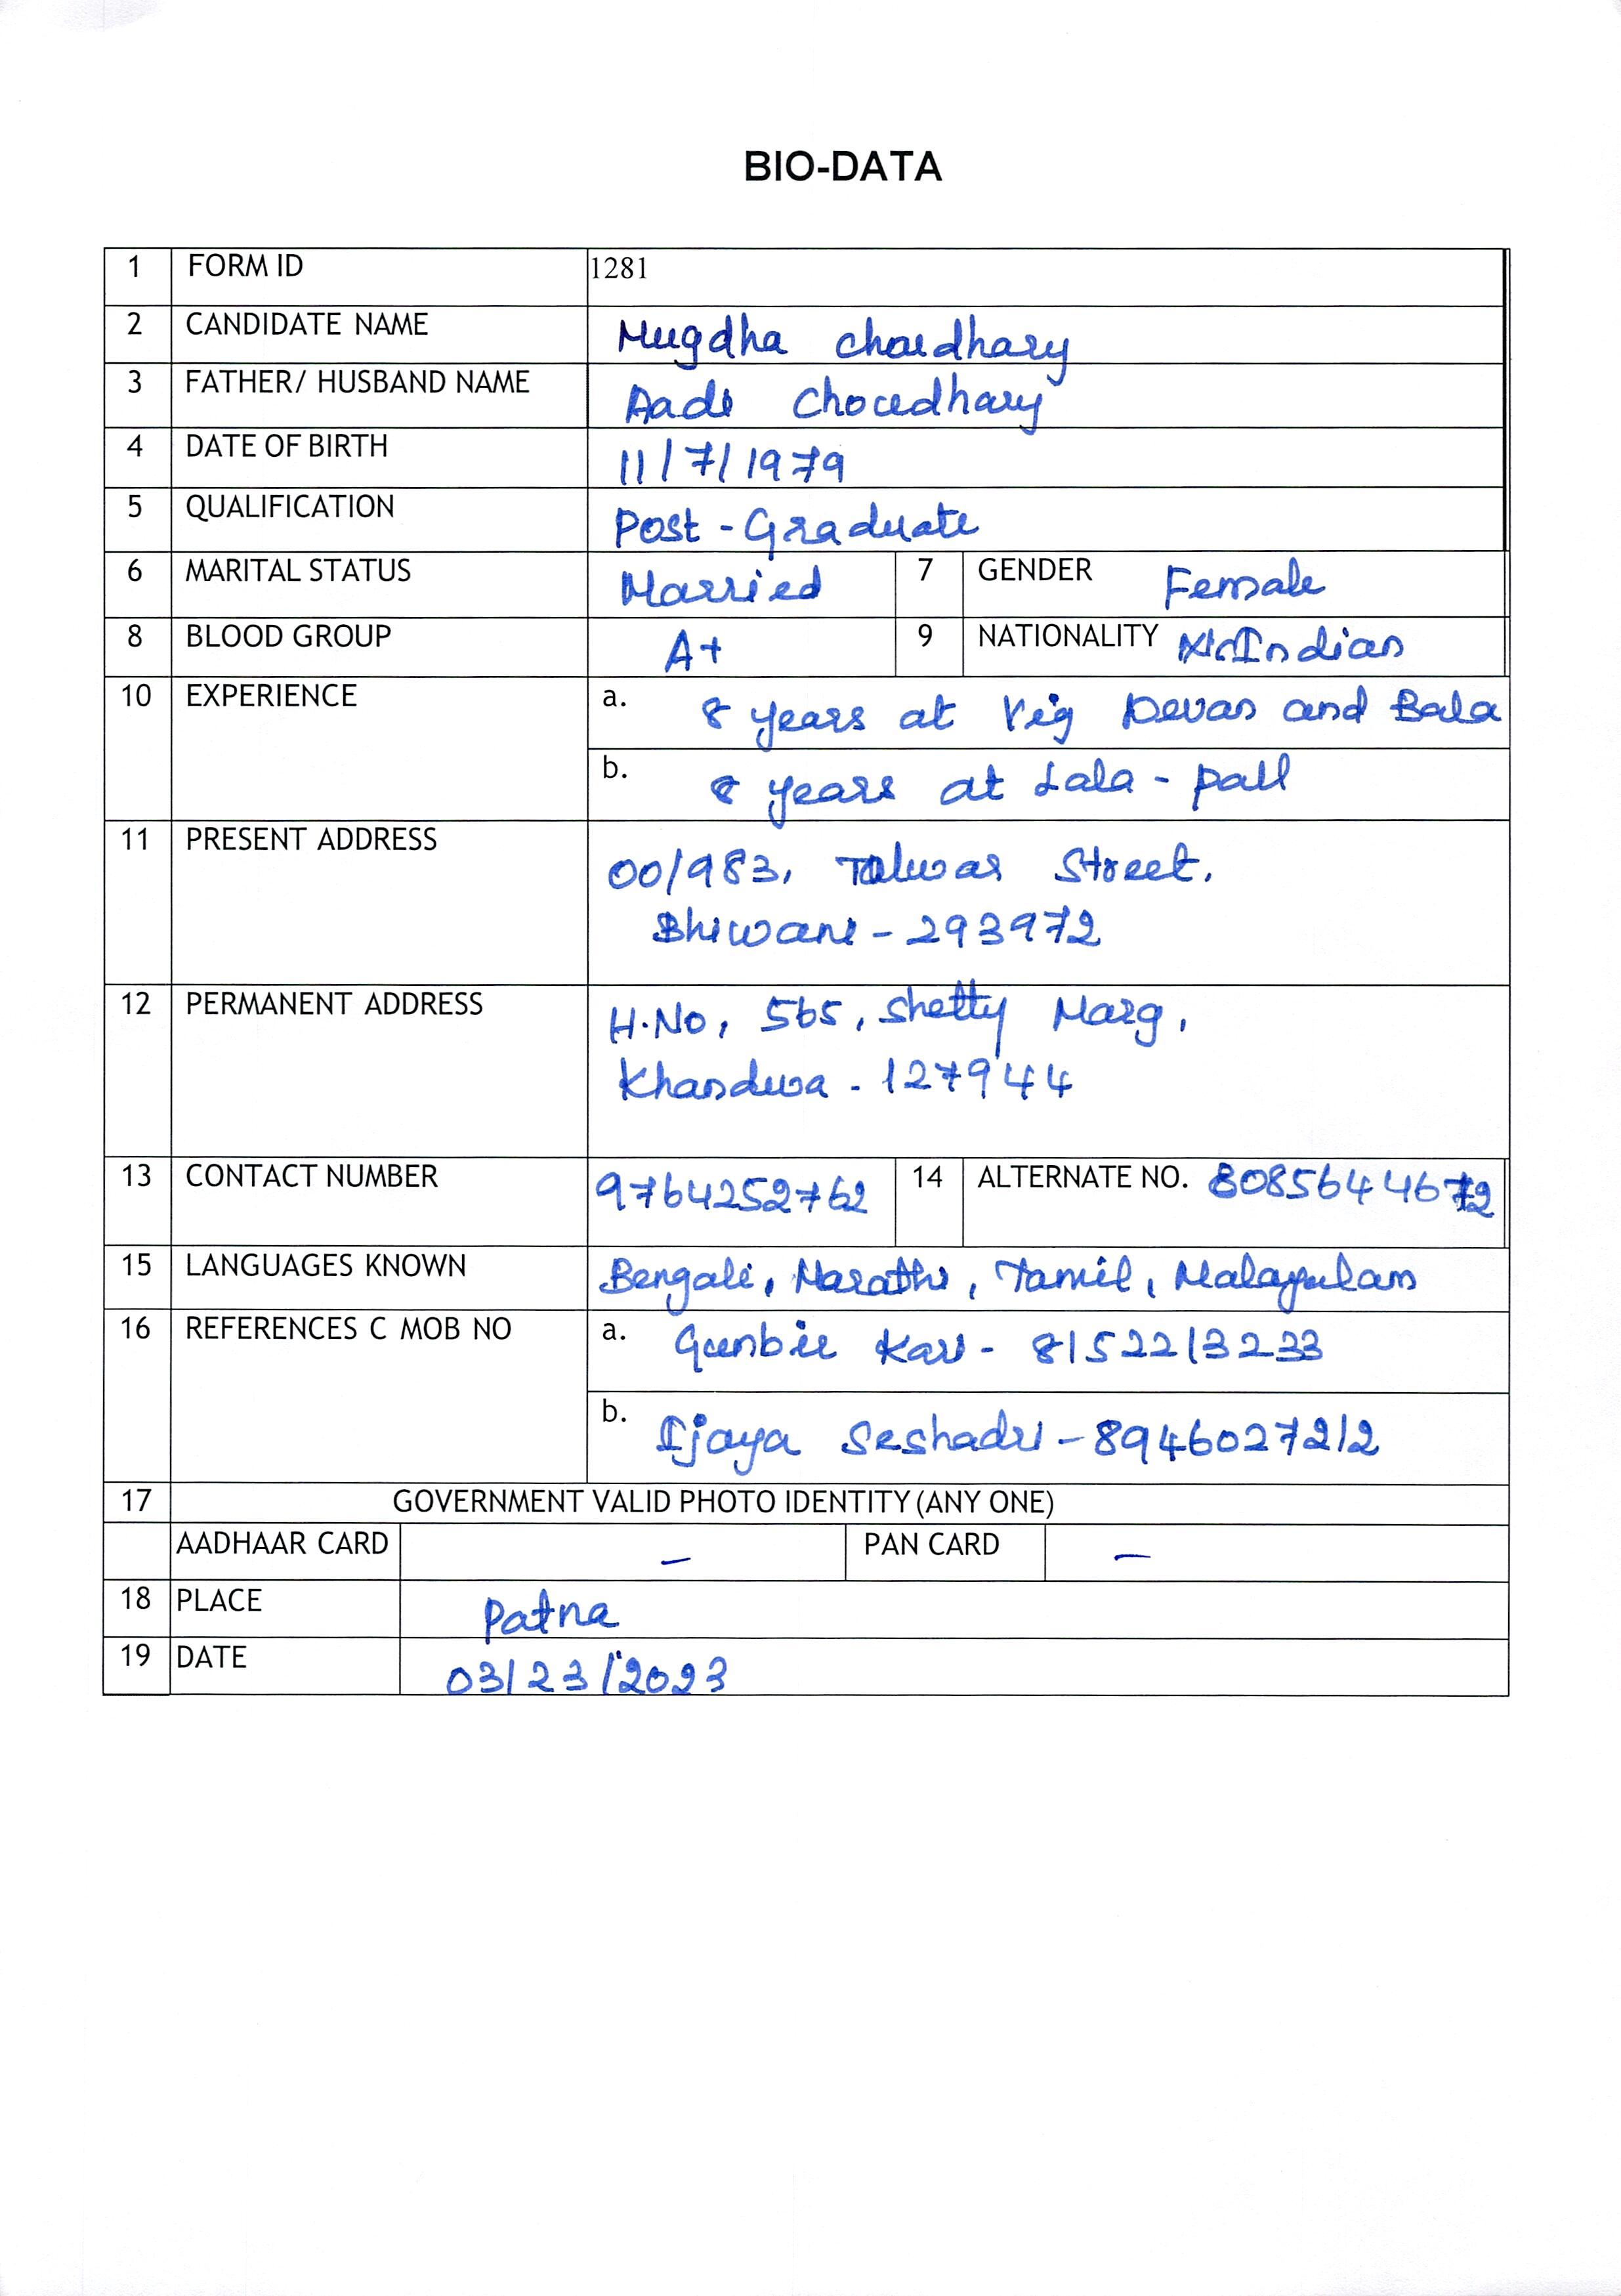 BIO-DATA
1 FORM ID 1281
2 CANDIDATE NAME Mugdha Choudhary
3 FATHER/ HUSBAND NAME Aadi Choudhary
4 DATE OF BIRTH 11/7/1979
5 QUALIFICATION Post-Graduate
6 MARITAL STATUS Married 7 GENDER Female
8 BLOOD GROUP A+ 9 NATIONALITY Indian
10 EXPERIENCE a. 8 years at Vig Devan and Bala
b. 8 years at Lala-pall
11 PRESENT ADDRESS 00/983, Talwar Street.
Bhiwani - 293972
12 PERMANENT ADDRESS H.No, 565, Shetty Marg,
Khandwa - 127944
13 CONTACT NUMBER 9764252762 14 ALTERNATE NO. 8085644672
15 LANGUAGES KNOWN Bengali, Marathi, Tamil, Malayalam
16 REFERENCES C MOB NO a. Gunbir Kar - 8152213233
b. Ijaya Seshadri - 8946027212
17 GOVERNMENT VALID PHOTO IDENTITY (ANY ONE)
AADHAAR CARD - PAN CARD -
18 PLACE Patna
19 DATE 03/23/2023